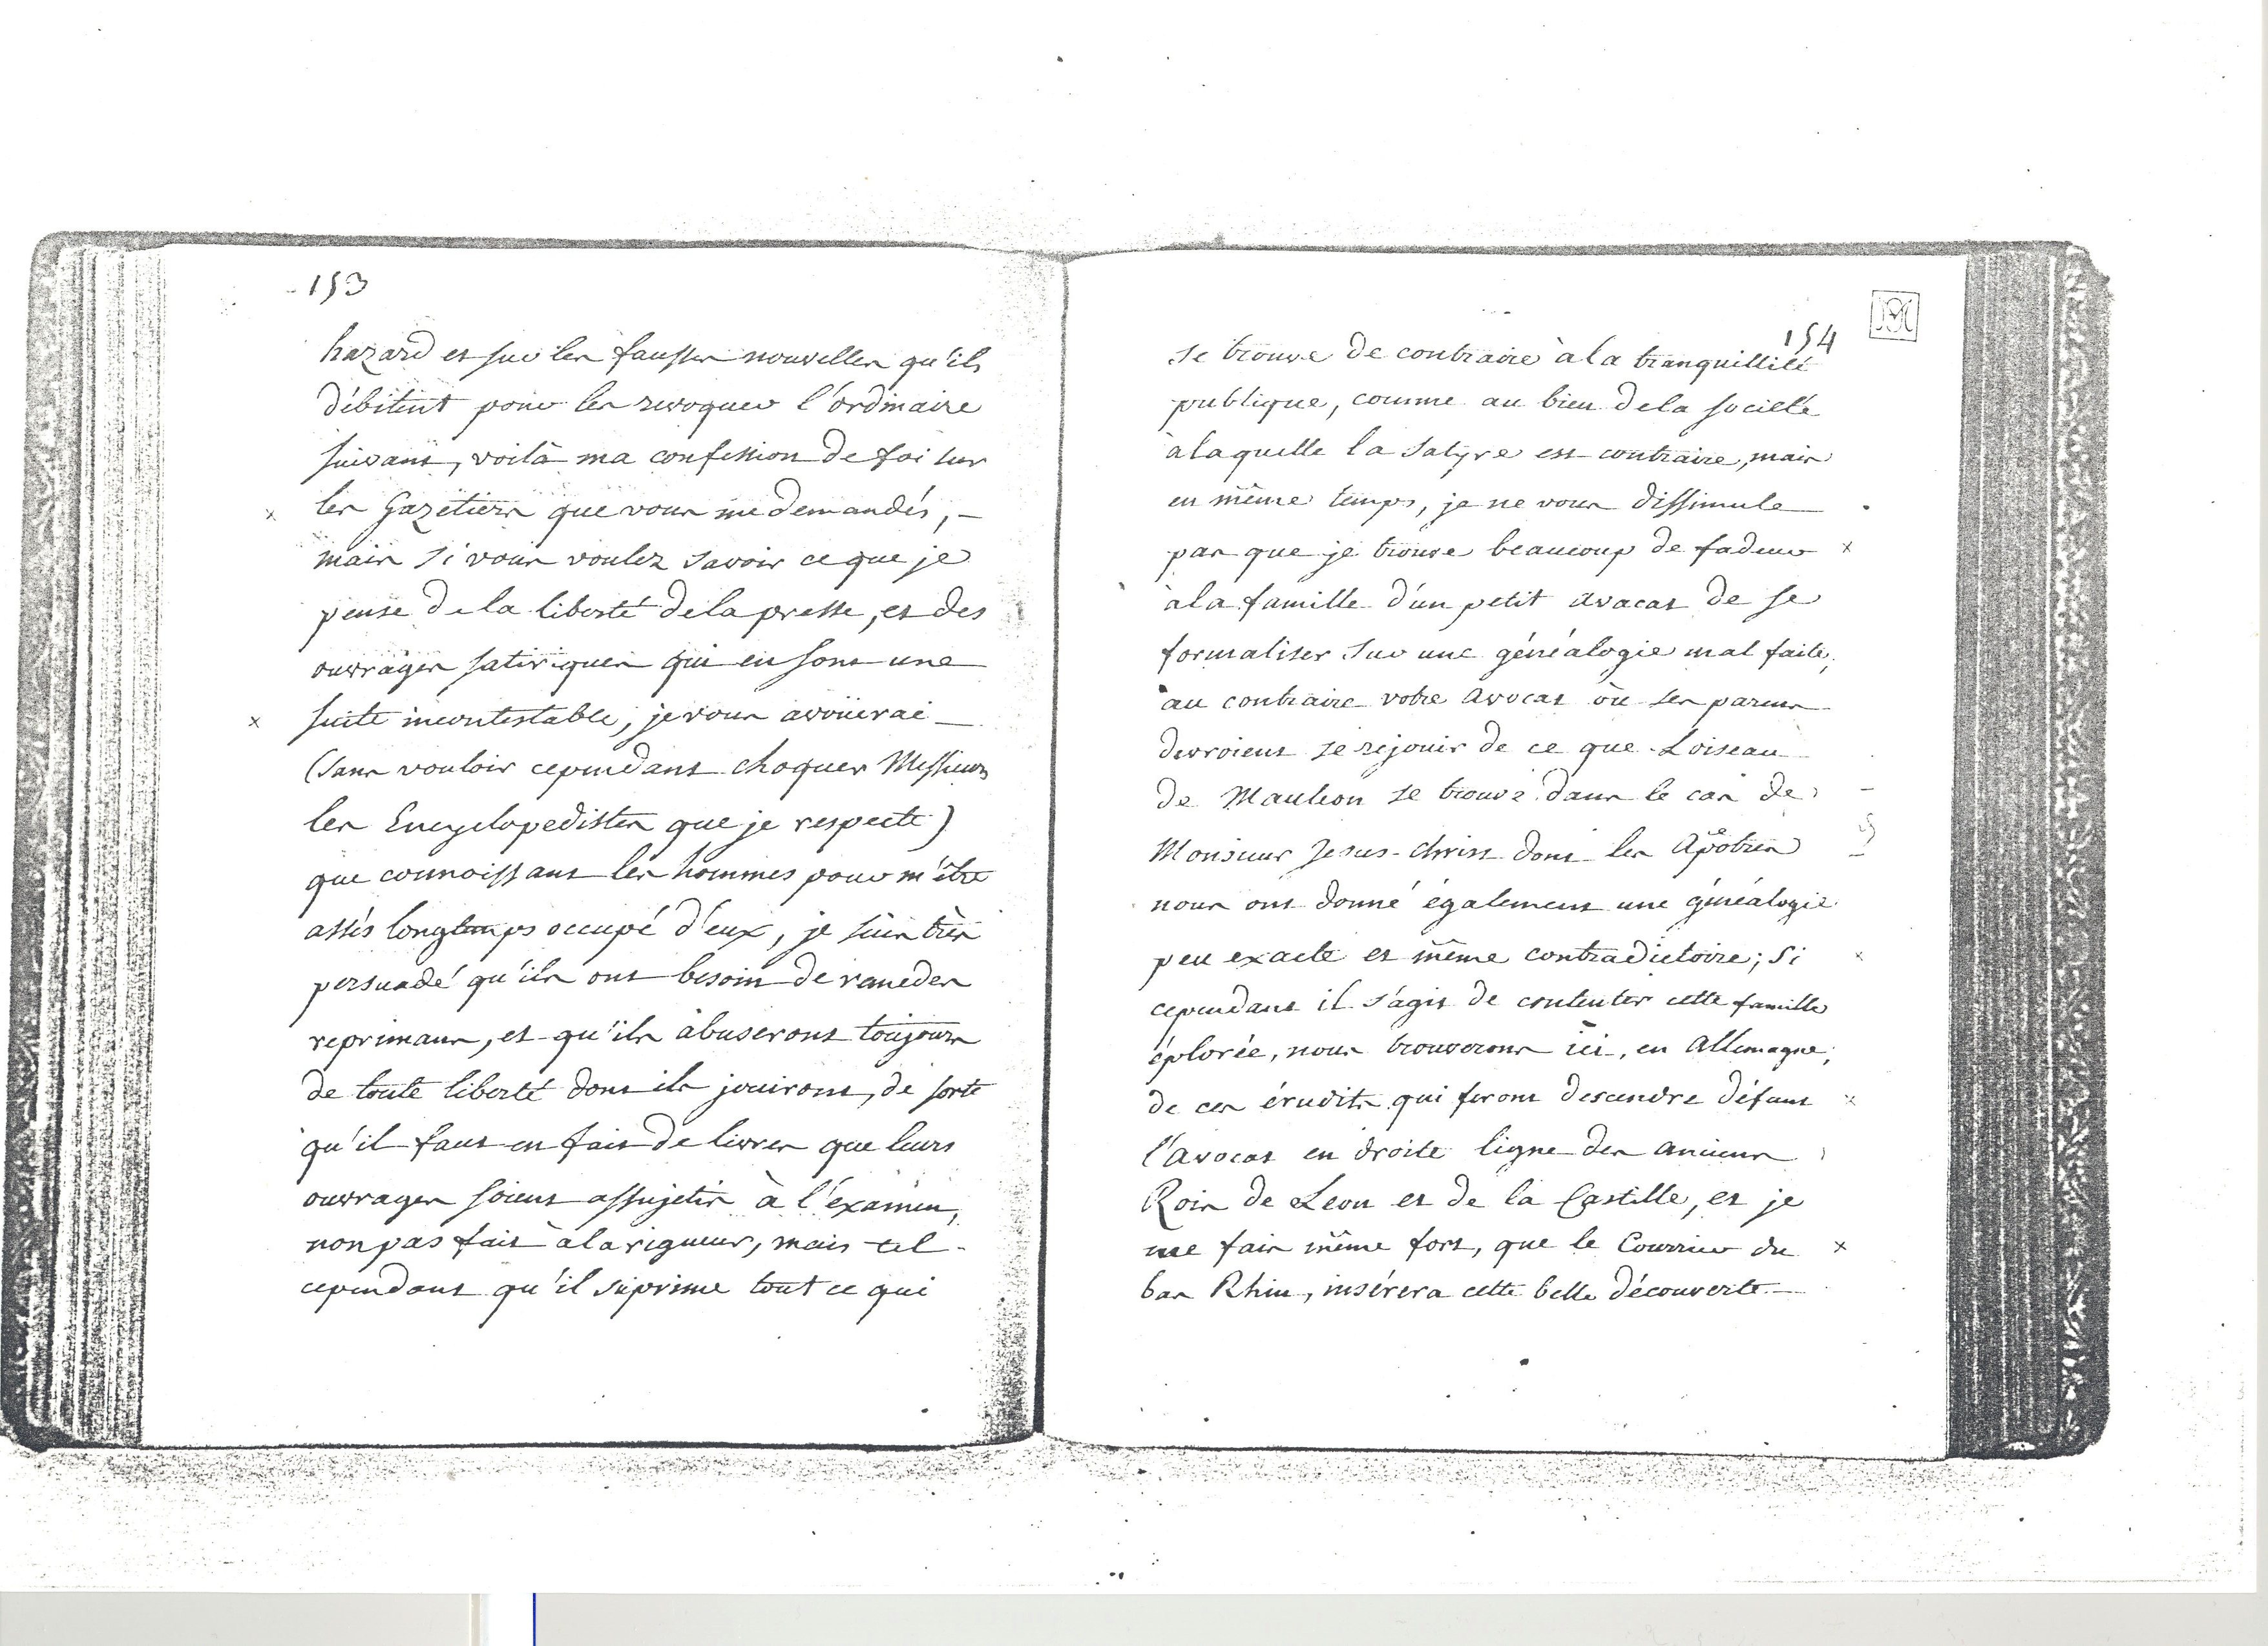 153
hazard et sur les fausses nouvelles qu'ils
débitent pour les revoquer l'ordinaire
suivant, voilà ma confession de foi sur
les Gazetiers que vous me demandés, -
mais si vous voulez savoir ce que je
pense de la liberté de la presse, et des
ouvrages satiriques qui en sont une
suite incontestable, je vous avoüerai -
(sans vouloir cependant choquer Messieurs
les Encyclopedistes que je respecte)
que connoissant les hommes pour m'être
assés longtemps occupé d'eux, je suis très
persuadé qu'ils ont besoin de remedes
reprimans, et qu'ils abuseront toujours
de toute liberté dont ils jouiront, de sorte
qu'il faut en fait de livres que leurs
ouvrages soient assujetis à l'éxamen,
non pas fait à la rigueur, mais tel -
cependant qu'il suprime tout ce qui
154
se trouve de contraire à la tranquillité
publique, comme au bien de la societé
à laquelle la satyre est contraire, mais
en même temps, je ne vous dissimule
pas que je trouve beaucoup de fadeur
à la famille d'un petit avacat de se
formaliser sur une généalogie mal faite,
au contraire votre avocat où ses parens
devroient se rejouir de ce que Loiseau
de Mauleon se trouve dans le cas de
Monsieur Jesus-Christ dont les Apôtres
nous ont donné également une généalogie
peu exacte et même contradictoire; si
cependant il s'agit de contenter cette famille
éplorée, nous trouverons ici, en Allemagne,
de ces érudits qui feront descendre défunt
l'avocat en droite ligne des anciens
Rois de Leon et de la Castille, et je
me fais même fort, que le Courrier du
bas Rhin, insérera cette belle découverte -